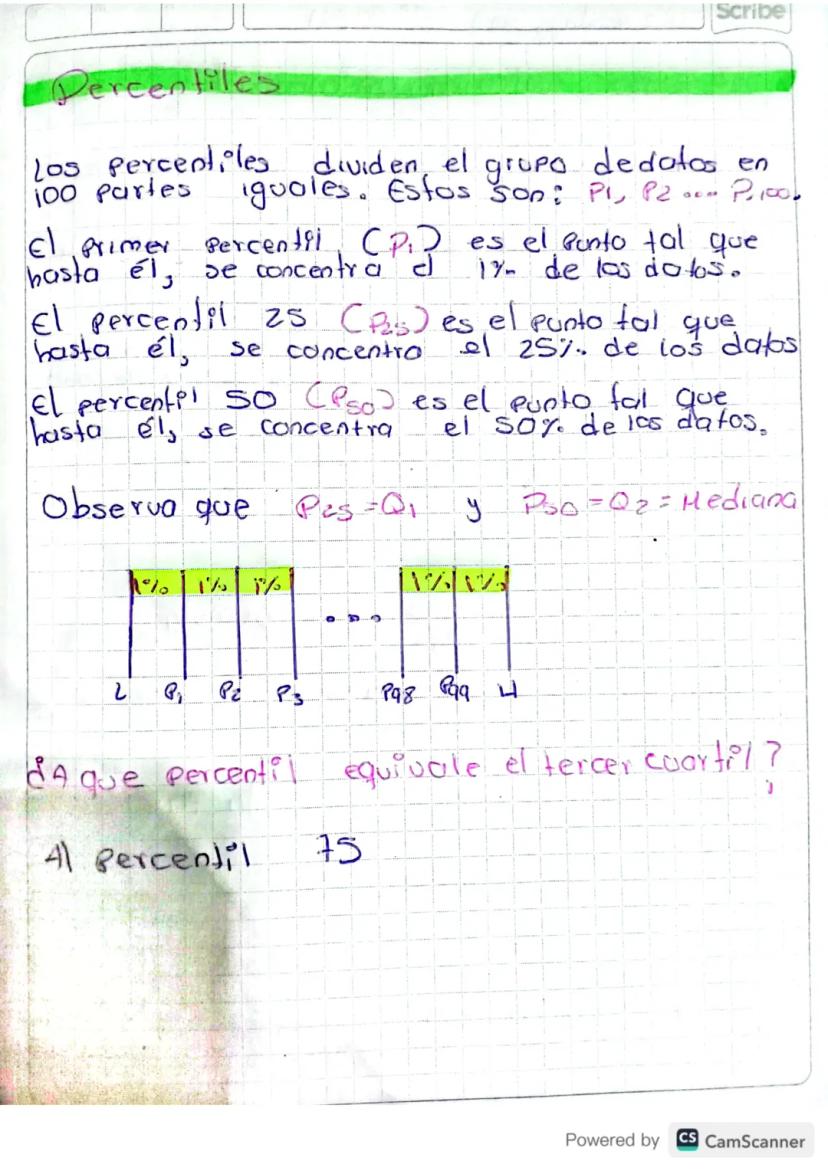 Scribe
Percentiles
Los percentiles dividen el grupo de datos en
100 partes iguales. Estos son: P1, P2 .... P100.
El primer percentil (P1) es el punto tal que
hasta él, se concentra el 1% de los datos.
El percentil 25 (P25) es el punto tal que
hasta él, se concentra el 25% de los datos
El percentil 50 (P50) es el punto tal que
hasta él, se concentra el 50% de los datos.
Observa que P25 = Q1 y P50 = Q2 = Mediana
1% 1% 1% 1% 1%
...
L P1 P2 P3 P98 P99 H
¿A que percentil equivale el tercer cuartil?
Al percentil 75
Powered by CS CamScanner